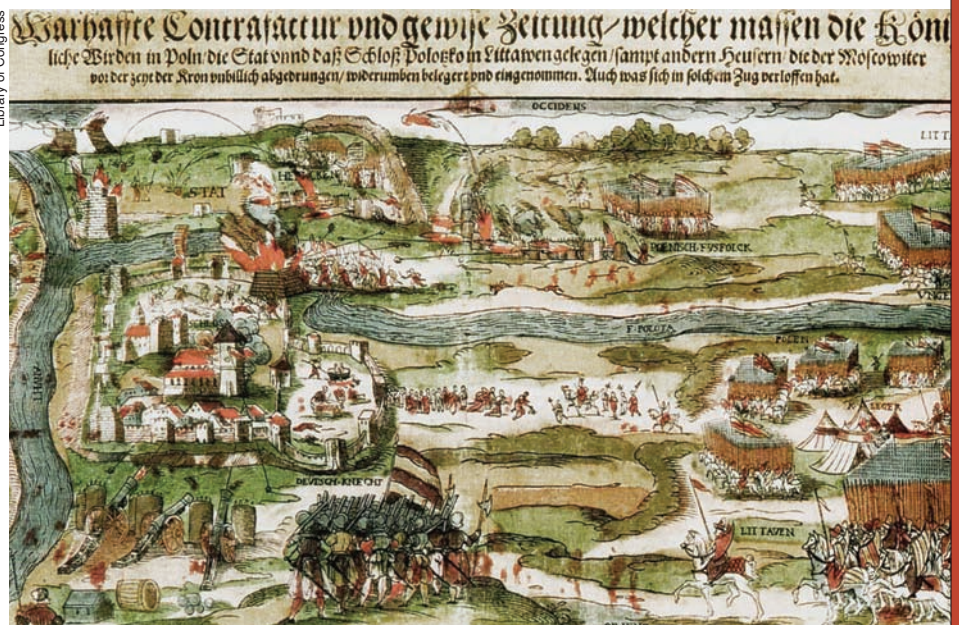 Library of Congress
Warhaffte Contrafactur vnd gewise Zeitung/ welcher massen die Köni
liche Wirden in Poln/ die Stat vnnd daß Schloß Polotzko in Littawen gelegen/ sampt andern Heusern/ die der Moscowiter
vor der zeyt der Kron vnbillich abgedrungen/ widerumben belegert vnd eingenommen. Auch was sich in solchem Zug verloffen hat.
OCCIDENS
LITT
STAT
POLNISCH FVSFOLCK
F. POLOTA
POLEN
LEGER
DEVTSCH KNECHT
LITTAVEN